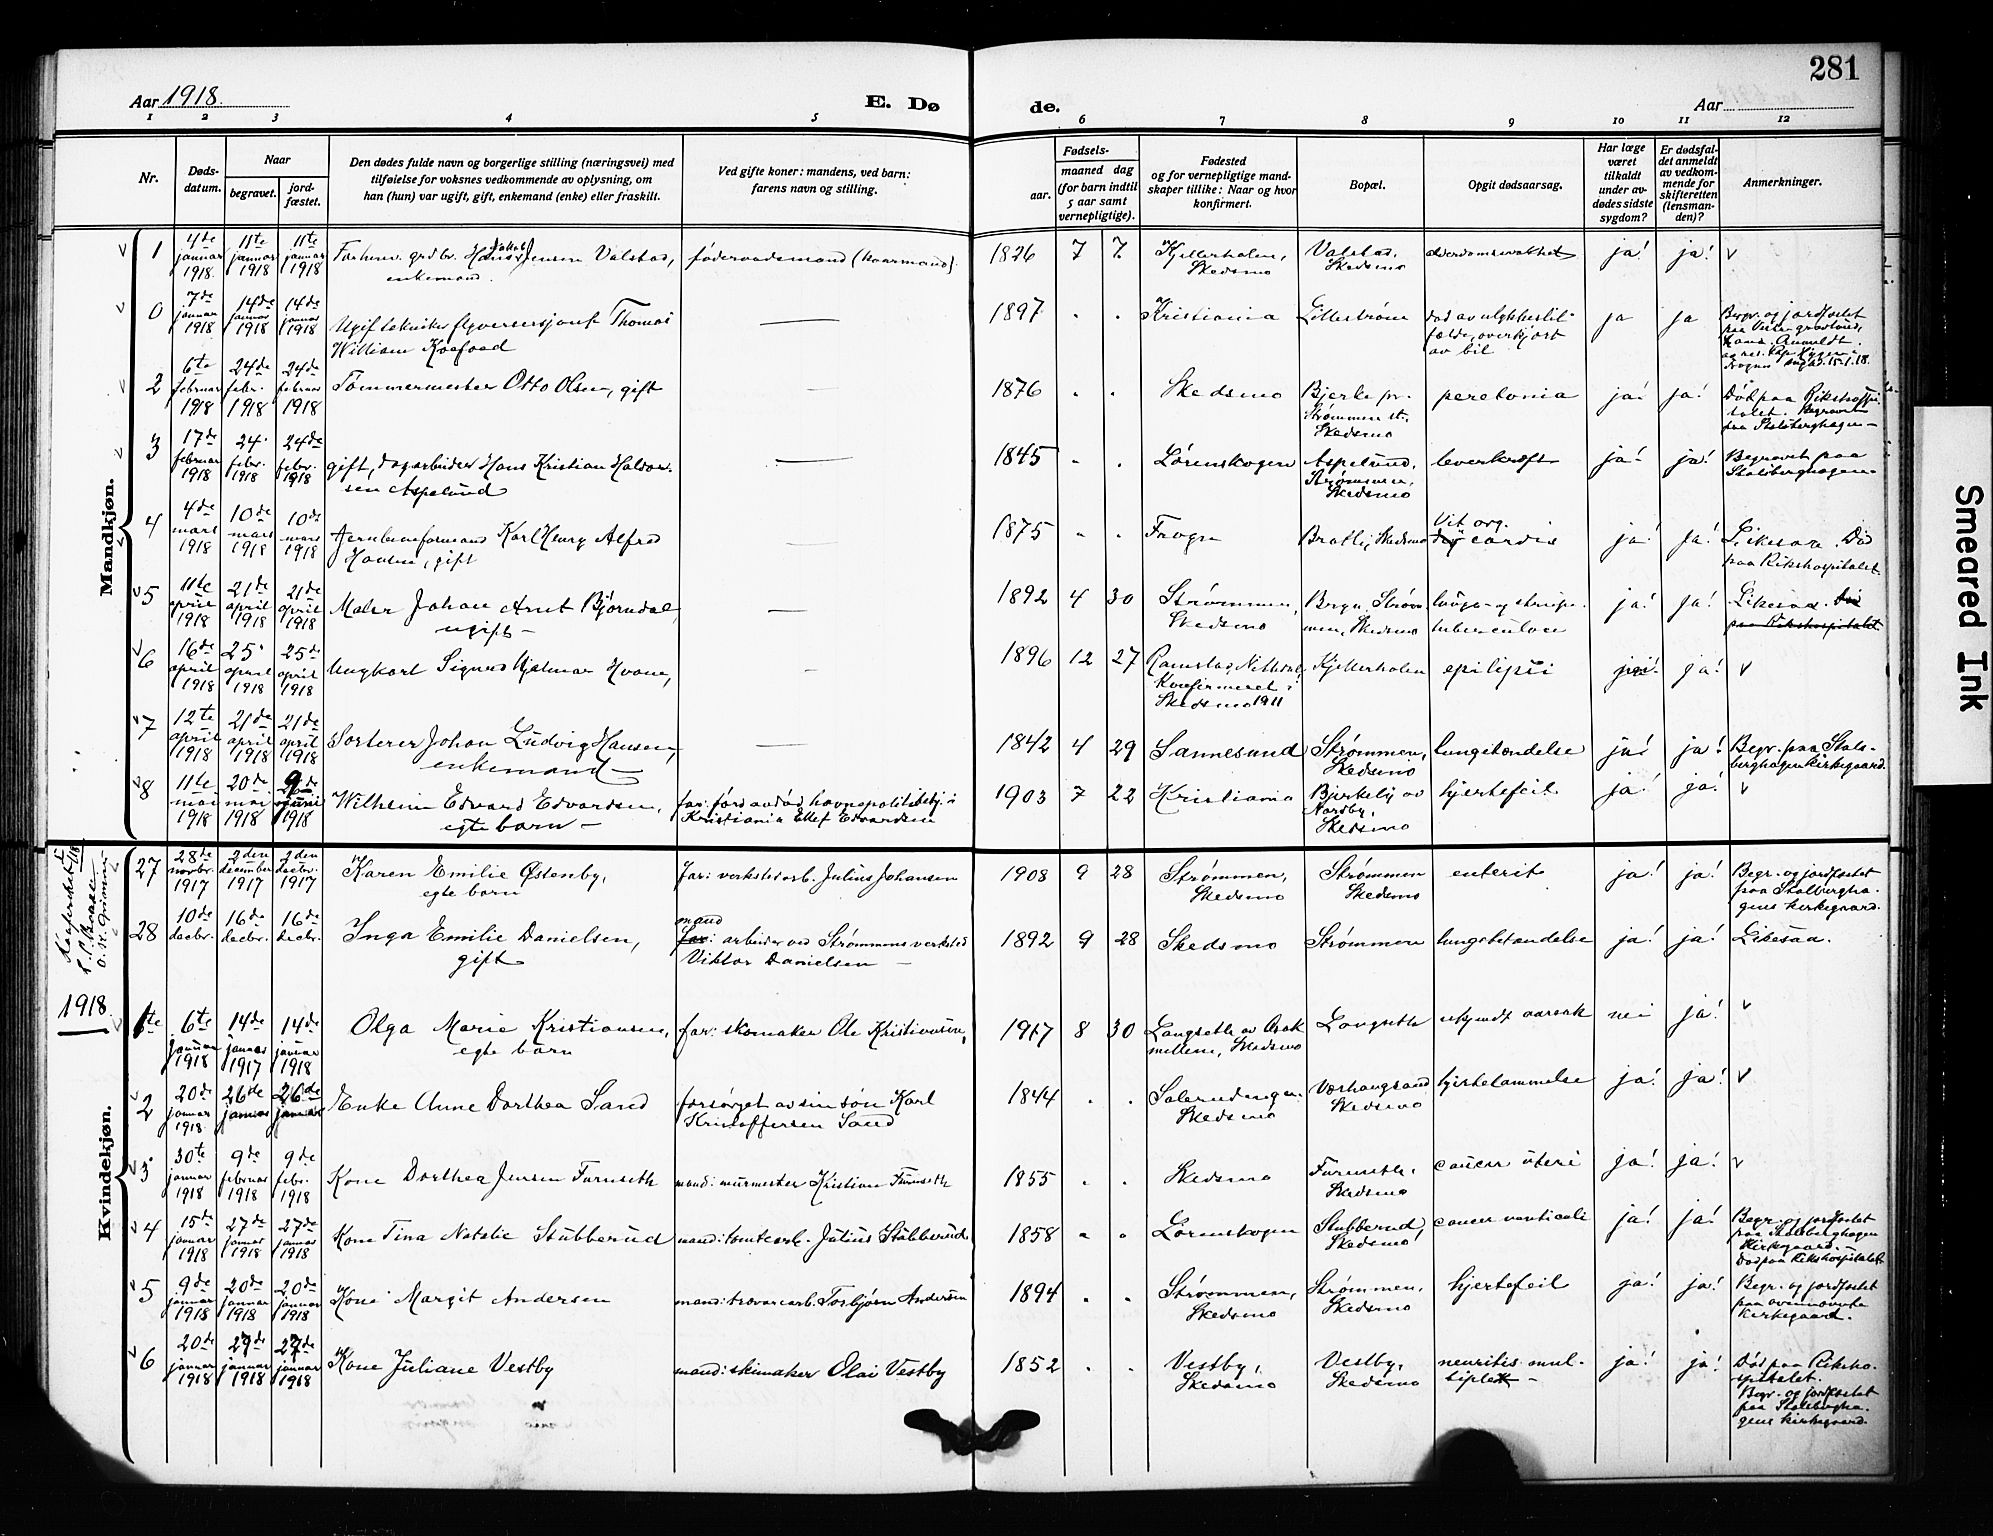 281
Aar 1918.
E. Døde.
Aar
1 2 3 4 5 6 7 8 9 10 11 12
Nr.
Døds-
datum.
Naar
begravet.
jord-
fæstet.
Den dødes fulde navn og borgerlige stilling (næringsvei) med
tilføielse for voksnes vedkommende av oplysning, om
han (hun) var ugift, gift, enkemand (enke) eller fraskilt.
Ved gifte koner: mandens, ved barn:
farens navn og stilling.
Fødsels-
aar.
maaned dag
(for barn indtil
5 aar samt
vernepligtige).
Fødested
og for vernepligtige mand-
skaper tillike: Naar og hvor
konfirmert.
Bopæl.
Opgit dødsaarsag.
Har læge
været
tilkaldt
under av-
dødes sidste
sygdom?
Er dødsfal-
det anmeldt
av vedkom-
mende for
skifteretten
(lensman-
den)?
Anmerkninger.
Mandkjøn.
1 4de januar 1918 11te januar 1918 11te januar 1918
Jensen Valstad,
enkemand.
føderaadsmand (kaarmand).
1826 7 7 Kjellerholen,
Skedsmo
Valstad,
Skedsmo
ja! ja! v
0 7de januar 1918 14de januar 1918 14de januar 1918
Thomas
William Koefoed
1897 Kristiania Lillestrøm
død av ulykkestil-
fælde, overkjørt
av bil
ja ja
Begr. og jordfæstet
paa Vestre gravlund,
2 6te februar 1918 24de febr. 1918 24de februar 1918
Tømmermester Otto Olsen, gift
1876 Skedsmo
Bjerke pr.
Strømmen st.
Skedsmo
peretonia ja! ja!
Død paa Rikshospi-
talet. Begravet
paa Stalsberghagen
3 17de februar 1918 24. febr. 1918 24de febr. 1918
gift, dagarbeider Hans Kristian Haldor-
sen Aspelund
1845 Lørenskogen
Aspelund,
Strømmen,
Skedsmo
leverkræft ja! ja!
Begravet paa
Stalsberghagen
4 4de mars 1918 10de mars 1918 10de mars 1918
Jernbaneformand Karl Henry Alfred
Hansen, gift
1875 Frogn Bratli, Skedsmo
Vit. org.
cordis
ja! ja!
Likesaa. Død
paa Rikshospitalet.
5 11te april 1918 21de april 1918 21de april 1918
Maler Johan Arnt Bjørndal,
ugift
1892 4 30 Strømmen,
Skedsmo
Strøm-
men, Skedsmo
lunge- og strupe-
tuberculose
ja! ja!
Likesaa. Død
paa Rikshospitalet
6 16de april 1918 25. april 1918 25de april 1918
Ungkarl Sigurd Hjalmar Hvam,
1896 12 27 Ramstad, Nittedal,
Konfirmeret i
Skedsmo 1911
Kjellerholen epilepsi ja! ja! v
7 12te april 1918 21de april 1918 21de april 1918
Sorterer Johan Ludvig Hansen,
enkemand
1842 4 29 Sannesund
Strømmen,
Skedsmo
lungebetændelse ja! ja!
Begr. paa Stals-
berghagen kirkegaard.
8 11te mai 1918 20de mai 1918 9de juni 1918
Wilhelm Edvard Edvardsen,
egte barn
far: førs avdød havnepolitibetj. i
Kristiania Ellef Edvardsen
1903 7 22 Kristiania
Bjerkely av
Nordby,
Skedsmo
hjertefeil ja! ja! v
Kvindekjøn.
27 28de novbr. 1917 2den december 1917 2den decbr. 1917
Karen Emilie Østenby,
egte barn
far: verkstedarb. Julius Johansen
1908 9 28 Strømmen,
Skedsmo
Strømmen
Skedsmo
enterit ja! ja!
Begr. og jordfæstet
paa Stalbergha-
gens kirkegaard.
28 10de decbr. 16de decbr. 16de decbr.
Inga Emilie Danielsen,
gift
mand
far: arbeider ved Strømmens verksted
Viktor Danielsen
1892 9 28 Skedsmo Strømmen lungebetændelse ja! ja! Likesaa.
1918.
1te 6te januar 1918 14de januar 1917 14de januar 1918
Olga Marie Kristiansen,
egte barn
far: skomaker Ole Kristiansen,
1917 8 30 Langseth av Asak
mellem, Skedsmo
Langseth ukjendt aarsak nei ja! v
2 20de januar 1918 26de januar 26de januar
Enke Anne Dorthea Sand
forsørget av sin søn Karl
Kristoffersen Sand
1844
Skedsmo
Værhaugsand
Skedsmo
hjertelammelse ja! ja! v
3 30te januar 1918 9de februar 1918 9de febr. 1918
Kone Dorthea Jensen Furuseth
mand: murmester Kristian Furuseth
1855 Skedsmo
Furuseth,
Skedsmo
cancer uteri ja! ja! v
4 15de januar 1918 27de januar 1918 27de januar 1918
Kone Tina Natalie Stubberud
mand: tomtearb. Julius Stubberud
1858 Lørenskogen
Stubberud,
Skedsmo
cancer ventriculi ja! ja!
Begr. og jordfæstet
paa Stalsberghagen
Kirkegaard.
Død paa Rikshospitalet.
5 9de januar 1918 20de januar 1918 20de januar 1918
Kone Margit Andersen
mand: trævarearb. Torbjørn Andersen
1894 Strømmen,
Skedsmo
Strømmen,
Skedsmo
hjertefeil ja! ja!
Begr. og jordfæstet
paa ovennævnte
kirkegaard.
6 20de januar 1918 27de januar 1918 27de januar 1918
Kone Juliane Vestby
mand: skimaker Olai Vestby
1852 Vestby,
Skedsmo
Vestby,
Skedsmo
neuritis mul-
tiplex
ja! ja!
Død paa Riksho-
spitalet.
Begr. og jordfæstet
paa Stalsbergha-
gens kirkegaard.
Smeared Ink